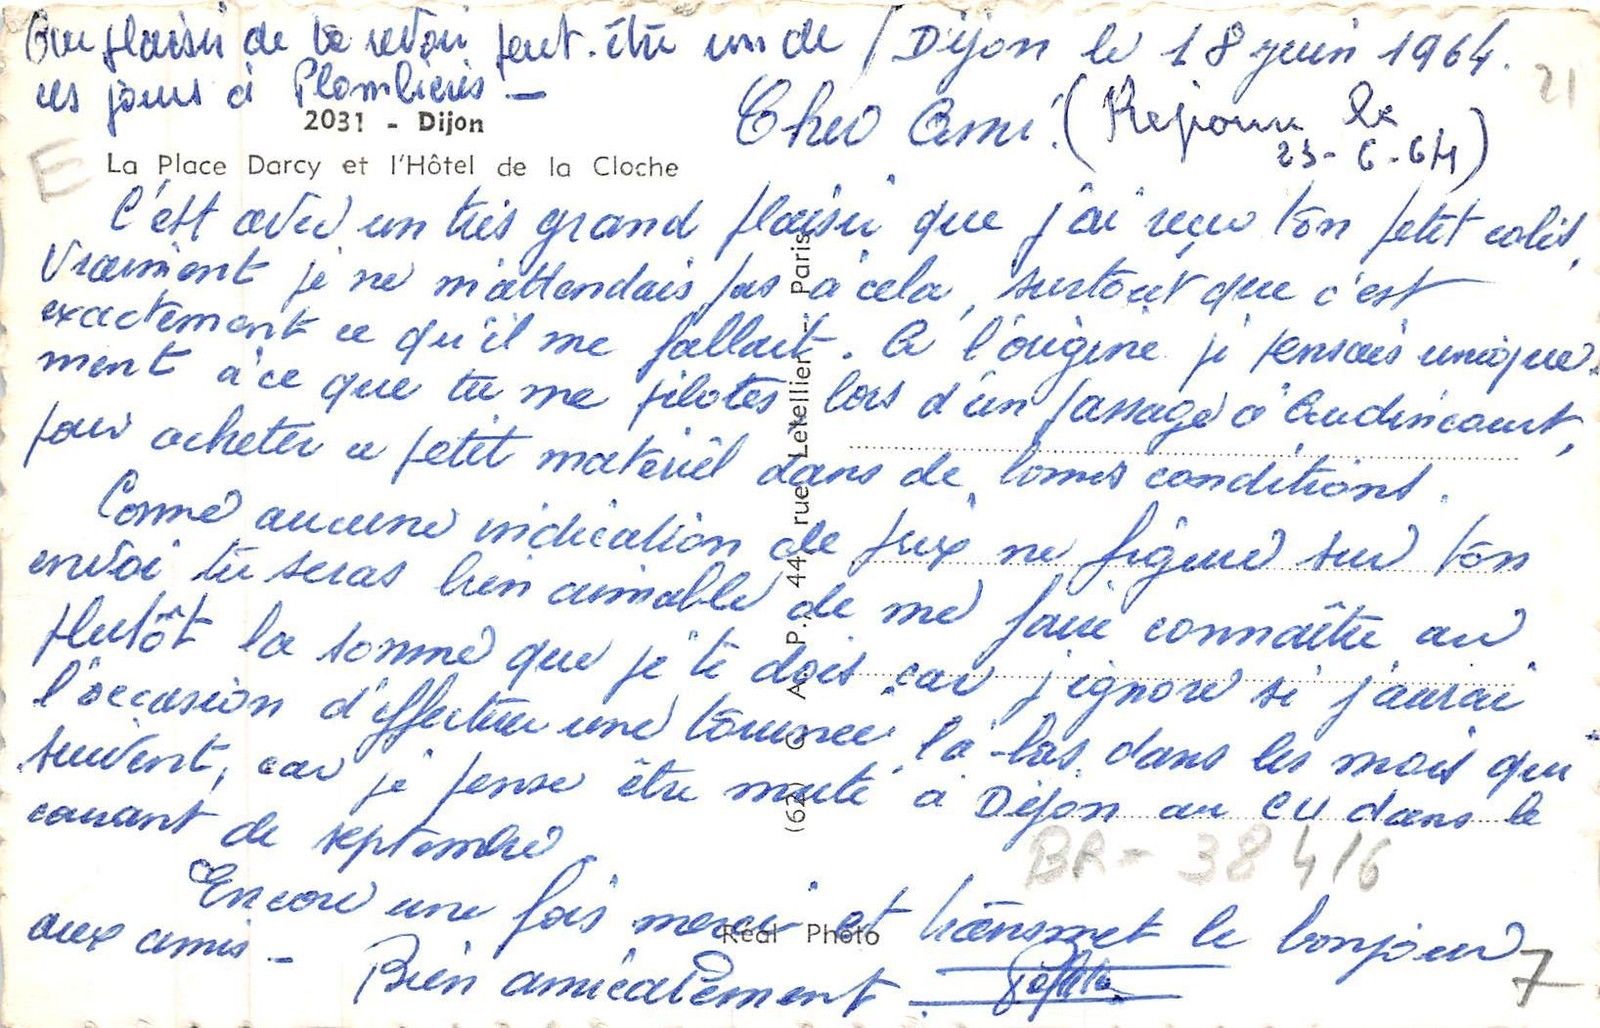 Au plaisir de te revoir peut-être un de
ces jours à Plombières -
Dijon le 18 juin 1964.
21
2031 - Dijon
La Place Darcy et l'Hôtel de la Cloche
E
Cher Ami. (Réponse le
23-6-64)
C'est avec un très grand plaisir que j'ai reçu ton petit colis.
Vraiment je ne m'attendais pas à cela, surtout que c'est
exactement ce qu'il me fallait. A l'origine je pensais unique-
ment à ce que tu me pilotes lors d'un passage à Audincourt,
pour acheter ce petit matériel dans de bonnes conditions.
Comme aucune indication de prix ne figure sur ton
envoi tu seras bien aimable de me faire connaître au
plutôt la somme que je te dois, car j'ignore si j'aurai
l'occasion d'effectuer une tournée là-bas dans les mois qui
suivent, car je pense être muté à Dijon au CU dans le
courant de septembre.
Encore une fois merci et transmet le bonjour
aux amis -
Bien amicalement.
BR- 38416
7
Réal Photo
(62) C. A. P. 44, rue Letellier - Paris